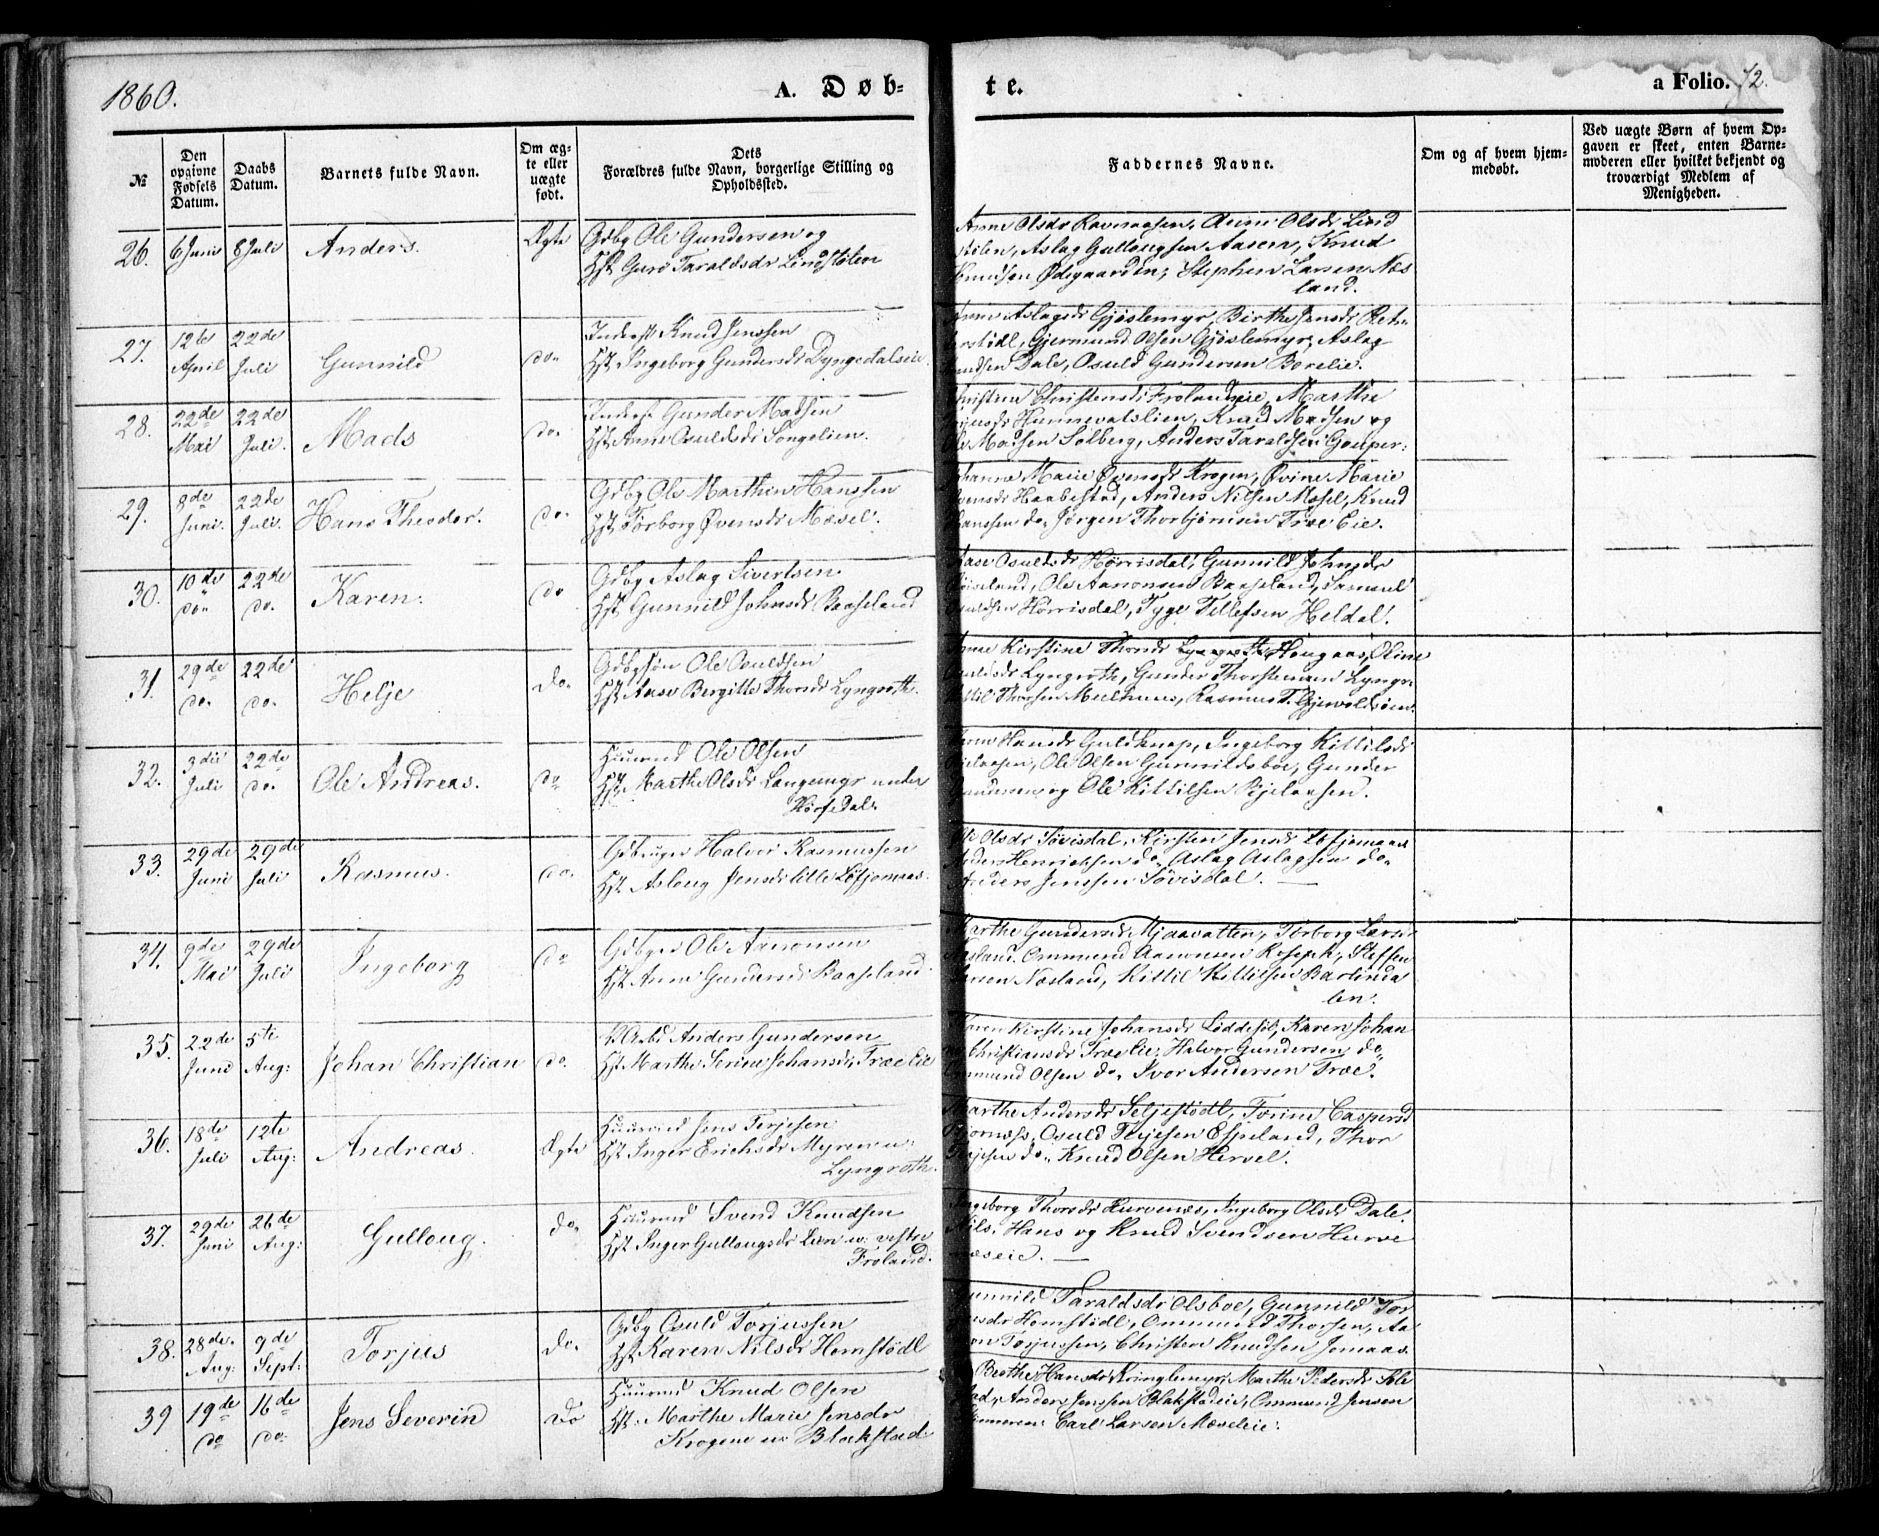 1860.
A. Døb-
te.
a Folio. 72.
№
Den opgivne Fødsels Datum.
Daabs Datum.
Barnets fulde Navn.
Om ægte eller uægte født.
Dets
Forældres fulde Navn, borgerlige Stilling og
Opholdssted.
Faddernes Navne.
Om og af hvem hjem-
medøbt.
Ved uægte Børn af hvem Op-
gaven er skeet, enten Barne-
moderen eller hvilket bekjendt og
troværdigt Medlem af
Menigheden.
26. 6 Juni 8 Juli Anders. Ægte Gdbg Ole Gundersen og
Hst Guro Taraldsdr Lindstølen
Anne Olsdr Ravnaasen, Anne Olsdr Lind
stølen, Aslag Gullougsen Aasen, Knud
Knudsen Ødegaarden, Stephen Larsen Næs
land.
27. 12te April 22de Juli Gunnild do. Inderst Knud Jensen
Hst Ingeborg Gundersdr Dyngedalseie
Anne Aslagsdr Gjøslemyr, Birthe Jensdr
Gjermund Olsen Gjøslemyr, Aslag
Knudsen Dale, Osuld Gundersen Borelie.
28. 22de Mai 22de Juli. Mads do. Inderst Gunder Madsen
Hst Anne Osuldsdr Songelien.
Christensdr Frolandseie, Marthe
Hunnevalslien, Knud Madsen og
Ole Madsen Solberg, Anders Taraldsen
29. 8de Juni. 22de Juli. Hans Theodor. do. Gdbg Ole Marthin Hanssen
Hst Torborg Øvensdr Mæsel.
Johanne Marie Øvensdr Krogen, Øvine Marie
Øvensdr Haabestad, Anders Nilsen Mæsel, Knud
Hanssen do. Jørgen Thorbjørnsen Træ Eie.
30. 10de do. 22de do. Karen. do Gdbg Aslag Sivertsen
Hst Gunnild Johnsdr Baaseland
Aase Osuldsdr Hørrisdal, Gunnild Johnsdr
Ole Aanonsen Baaseland, Samuel
Osuldsen Hørrisdal, Tyge Tellefsen Heldal.
31. 29de do. 22de do. Helje do. Gdbgsøn Ole Osuldsen
Hst Aase Bergitte Thorsdr Lyngroth.
Anne Kirstine Thorsdr Hougaas, Oline
Osuldsdr Lyngroth, Gunder Thorstensen Lyngr.
Kittil Thorsen Rasmus T. Gjevoldsøen.
32. 3die Juli 22de do. Ole Andreas. do Huusmd Ole Olsen
Hst Marthe Olsdr Langemyr under
Hørsdal.
Hansdr Guldknap, Ingeborg Kittilsdr
Bjelaasen, Ole Olsen Gunnildsboe, Gunder
Gundersen og Ole Kittilsen Bjelaasen.
33. 29de Juni 29de Juli Rasmus. do. Gdbruger Halvor Rasmussen
Hst Aslaug Jensdr lille Løfjomaas.
Olsdr Søvisdal, Kirsten Jensdr Løfjomaas
Anders Henriksen do. Aslag Aslagsen do.
Anders Jenssen Søvisdal.
34. 9de Mai 29de Juli Ingeborg do Gdbger Ole Aanonsen
Hst Anne Gundersdr Baaseland.
Marthe Gundersdr Mjaavatten, Torborg Larsdr
Næsland, Ommund Aanonsen Steffen
Larsen Næsland, Kittil Kittilsen Barlinda
len.
35. 22de Juni 5te Aug: Johan Christian do. Arbd Anders Gundersen
Hst Marthe Serine Johansdr Træe Eie
Karen Kirstine Johansdr Løddesøl, Karen Johan
ne Christiansdr Træe Eie, Halvor Gundersen do.
Ommund Olsen do. Ivor Andersen Træe.
36. 18de Juli 12te Aug: Andreas. Ægte Huusmd Jens Terjesen
Hst Inger Erichsdr Myren u:
Lyngroth.
Marthe Andersdr Seljestødl, Torine Caspersd
Bjornæs, Osuld Terjesen Espeland, Thor
Terjesen do. Knud Olsen Hervel.
37. 29de Juni 26de Aug: Gulloug. do. Huusmd Svend Knudsen
Hst Inger Gullougsdr Lien u: vestre
Froland.
Ingeborg Thorsdr Hurvenes, Ingeborg Olsdr Dale,
Nils, Hans og Knud Svendsen Hurve
næseie.
38. 28de Aug: 9de Sept: Torjus do. Gdbg Osuld Torjussen
Hst Karen Nilsdr Homstødl
Gunnild Taraldsdr Olsboe, Gunnild Tor
jusdr Homstødl, Ommund Thorsen, Aa
non Torjussen, Christen Knudsen Jomaas.
39 19de do 16de do. Jens Severin do Huusmd Knud Olsen
Hst: Marthe Marie Jensdr
Krogene u: Blakstad.
Berthe Hansdr Kringlemyr, Marthe Pedersdr
Anders Jensen Blakstadeie, Ommund Jensen
Carl Larsen Mæseleie.